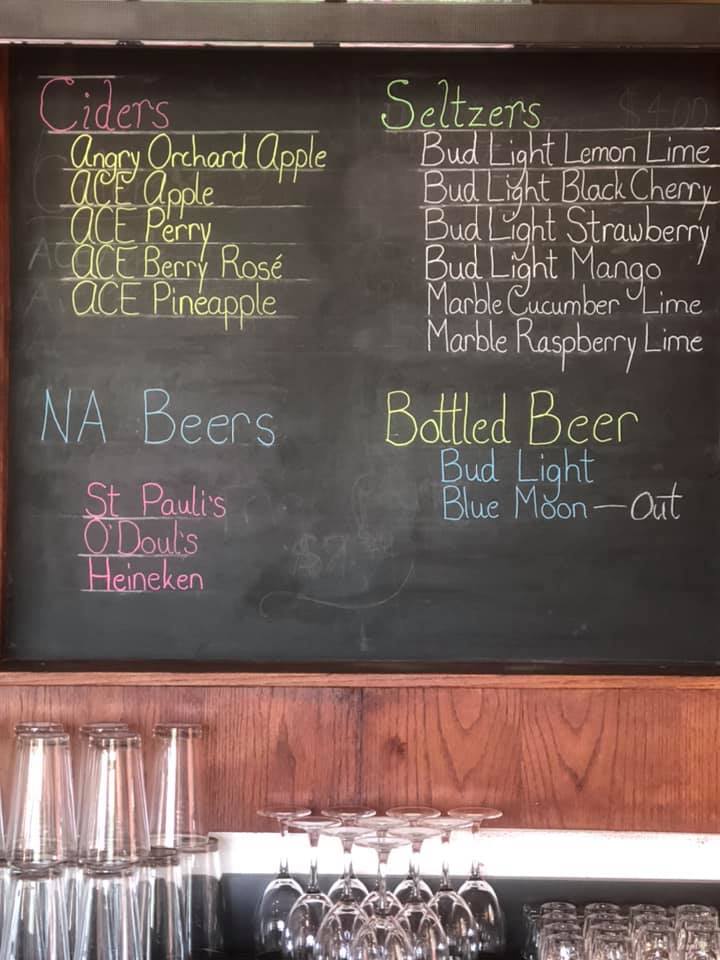 Ciders
Angry Orchard Apple
ACE Apple
ACE Perry
ACE Berry Rosé
ACE Pineapple
Seltzers
$4.00
Bud Light Lemon Lime
Bud Light Black Cherry
Bud Light Strawberry
Bud Light Mango
Marble Cucumber Lime
Marble Raspberry Lime
NA Beers
St Pauli's
O'Doul's
Heineken
Bottled Beer
Bud Light
Blue Moon — Out